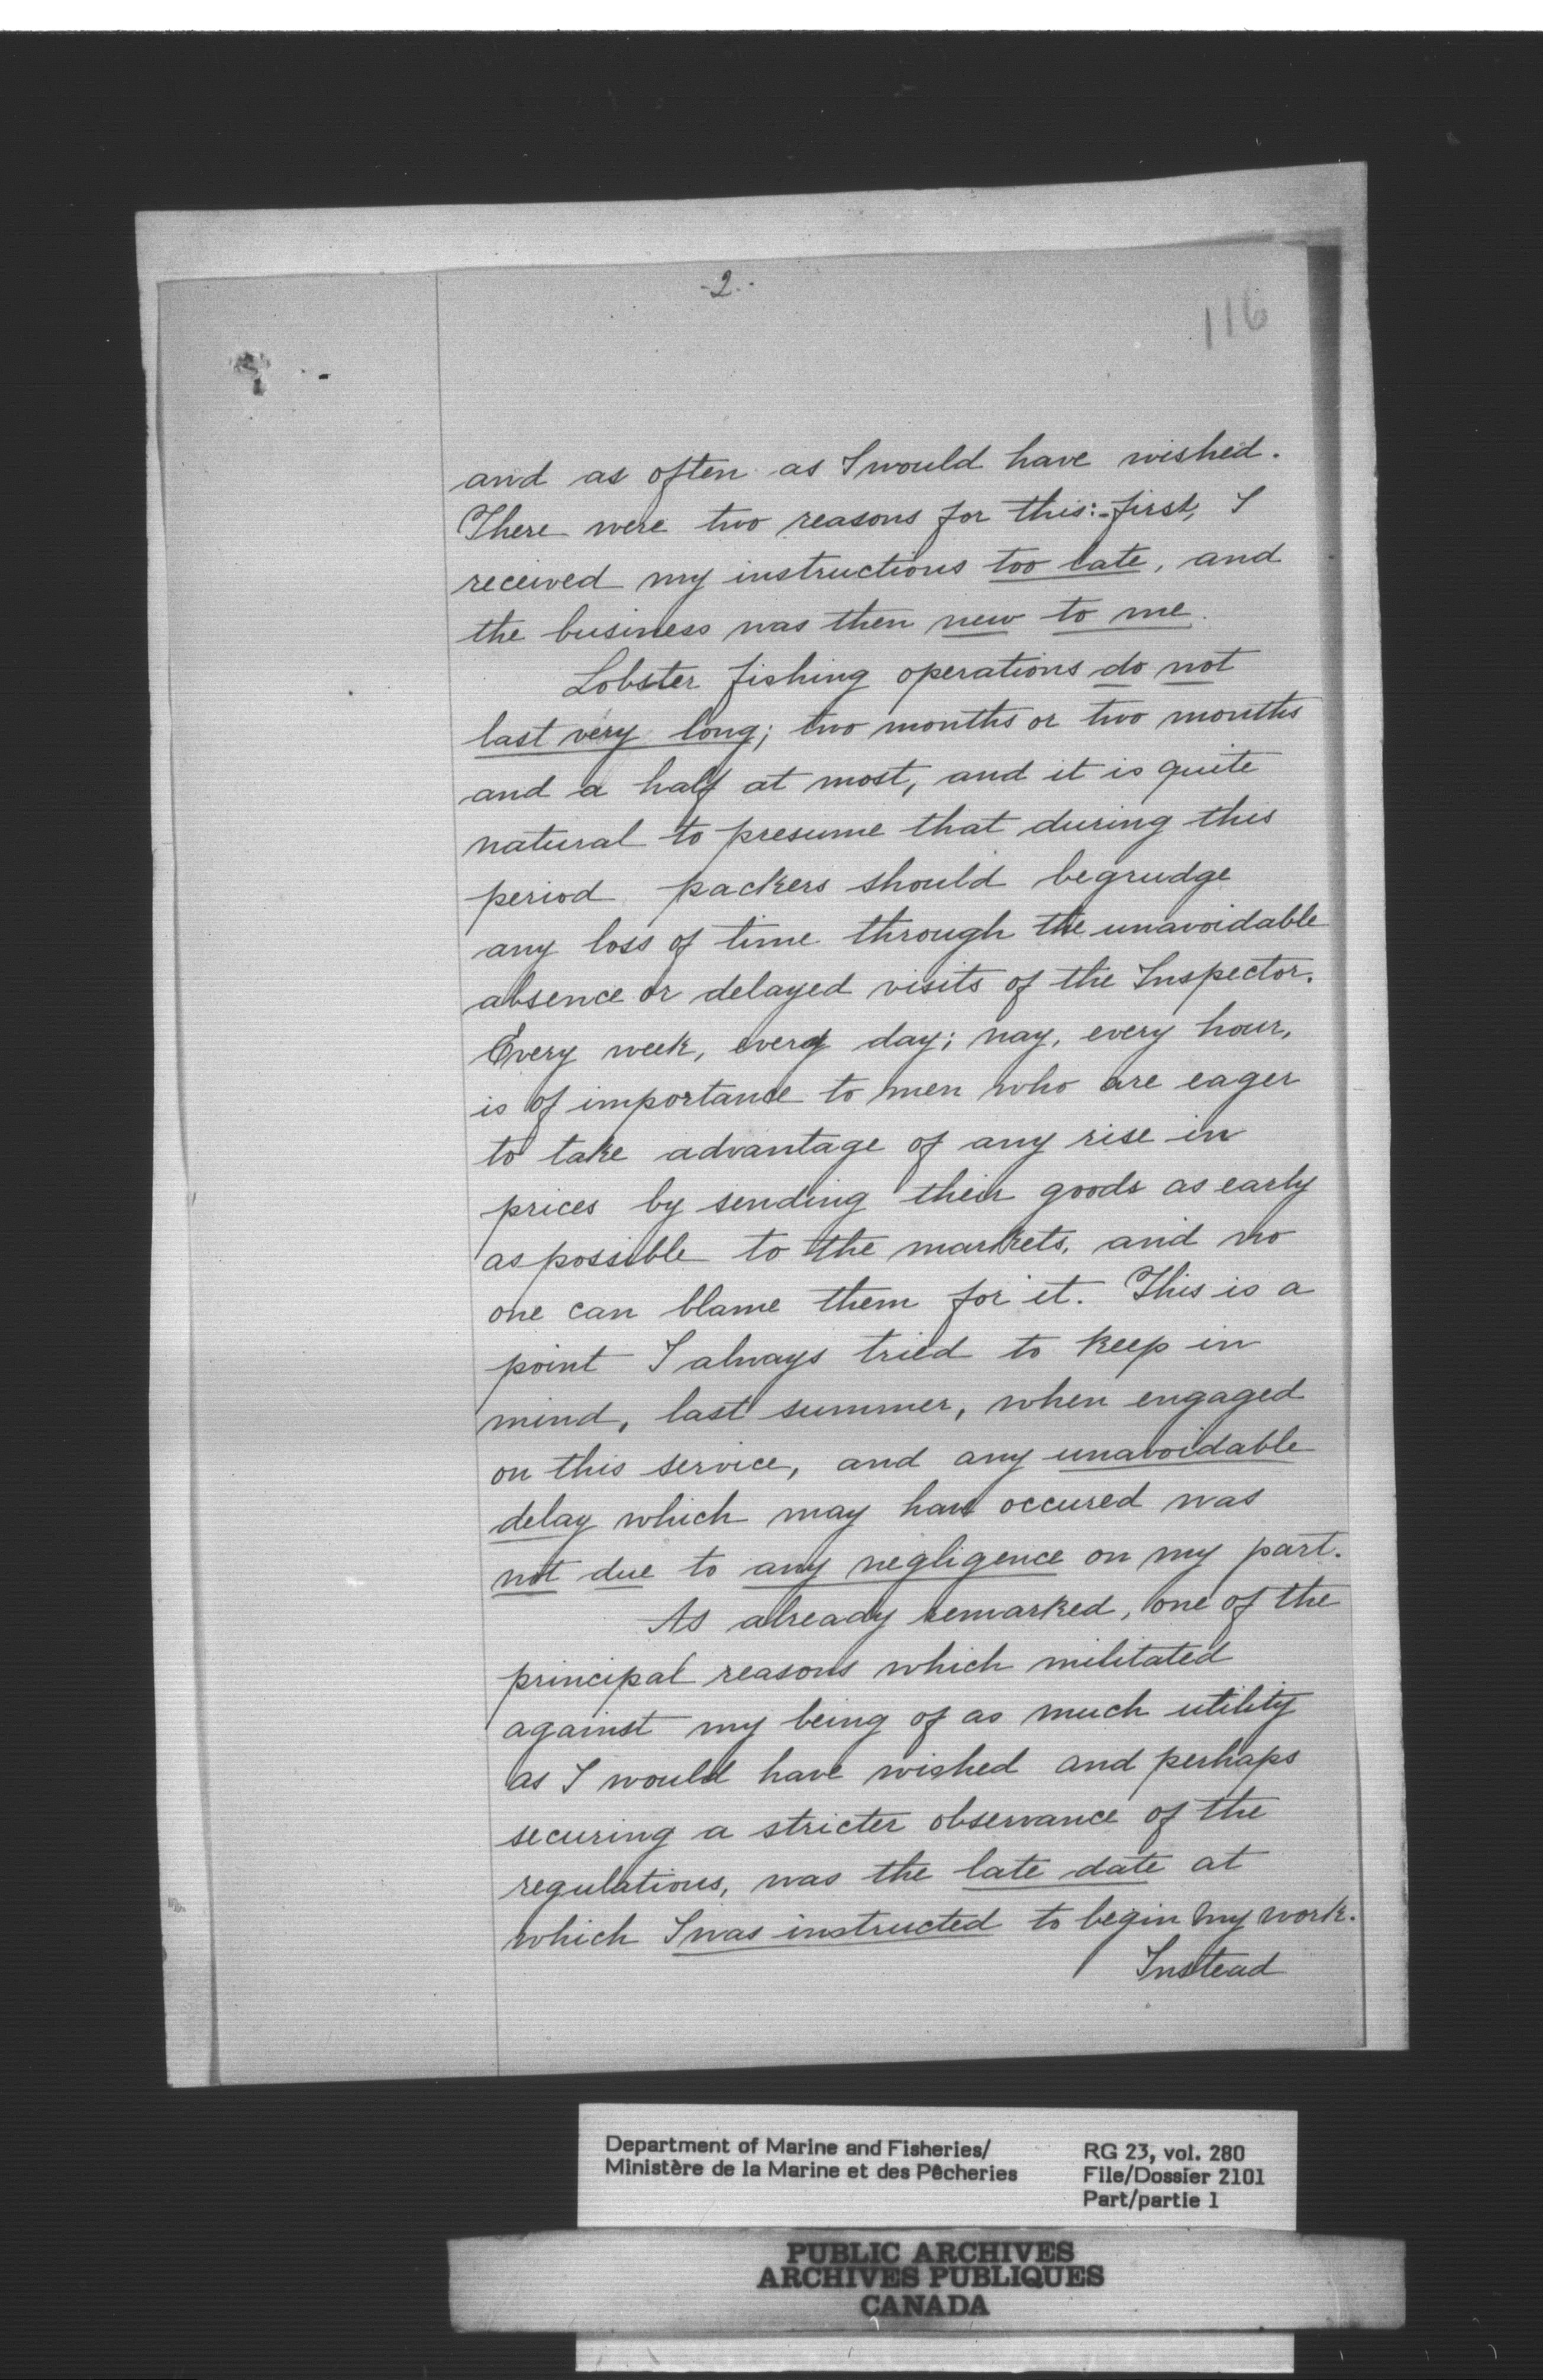 -2-
116
and as often as I would have wished.
There were two reasons for this:- first, I
received my instructions too late, and
the business was then new to me.
Lobster fishing operations do not
last very long; two months or two months
and a half at most, and it is quite
natural to presume that during this
period packers should begrudge
any loss of time through the unavoidable
absence or delayed visits of the Inspector.
Every week, every day; nay, every hour,
is of importance to men who are eager
to take advantage of any rise in
prices by sending their goods as early
as possible to the markets, and no
one can blame them for it. This is a
point I always tried to keep in
mind, last summer, when engaged
on this service, and any unavoidable
delay which may have occured was
not due to any negligence on my part.
As already remarked, one of the
principal reasons which militated
against my being of as much utility
as I would have wished and perhaps
securing a stricter observance of the
regulations, was the late date at
which I was instructed to begin my work.
Instead
Department of Marine and Fisheries/
Ministère de la Marine et des Pêcheries
RG 23, vol. 280
File/Dossier 2101
Part/partie 1
PUBLIC ARCHIVES
ARCHIVES PUBLIQUES
CANADA